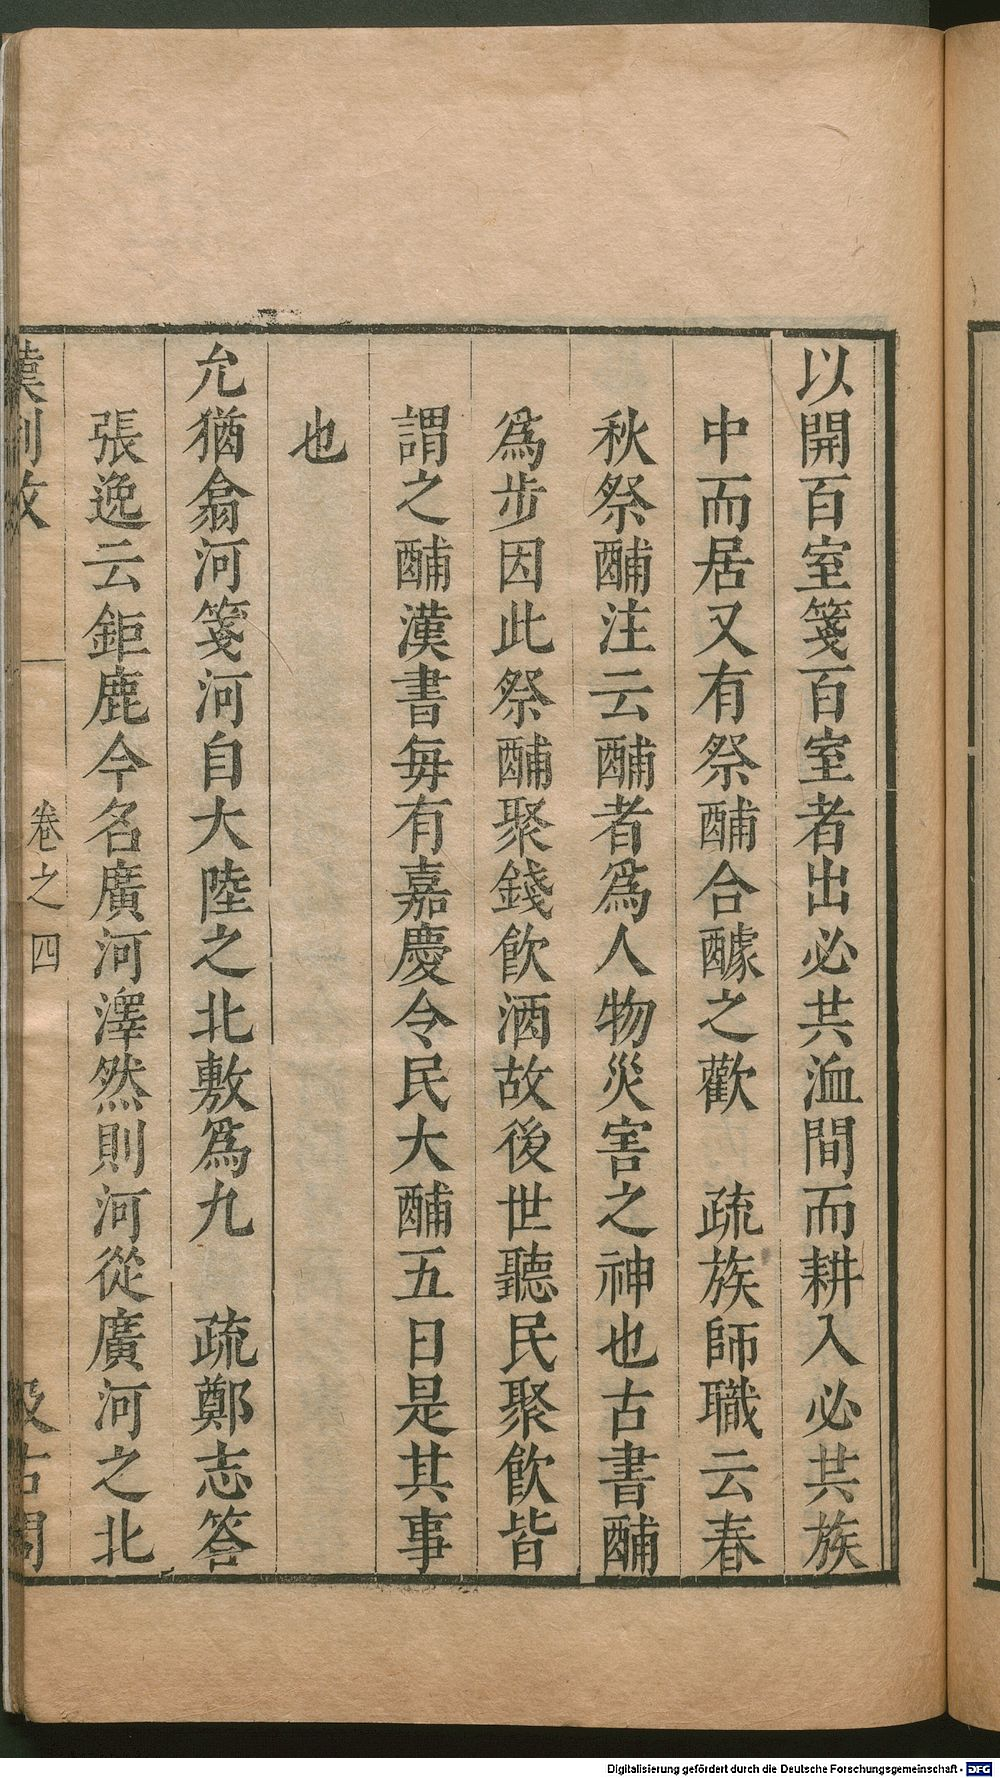 以開百室箋百室者出必共洫間而耕入必共族
中而居又有祭酺合醵之歡　疏族師職云春
秋祭酺注云酺者為人物災害之神也古書酺
爲步因此祭酺聚錢飲酒故後世聽民聚飲皆
謂之酺漢書每有嘉慶令民大酺五日是其事
也
允猶翕河箋河自大陸之北敷爲九　疏鄭志答
張逸云鉅鹿今名廣河澤然則河從廣河之北
漢制攷
卷之四
汲古閣
Digitalisierung gefördert durch die Deutsche Forschungsgemeinschaft - DFG